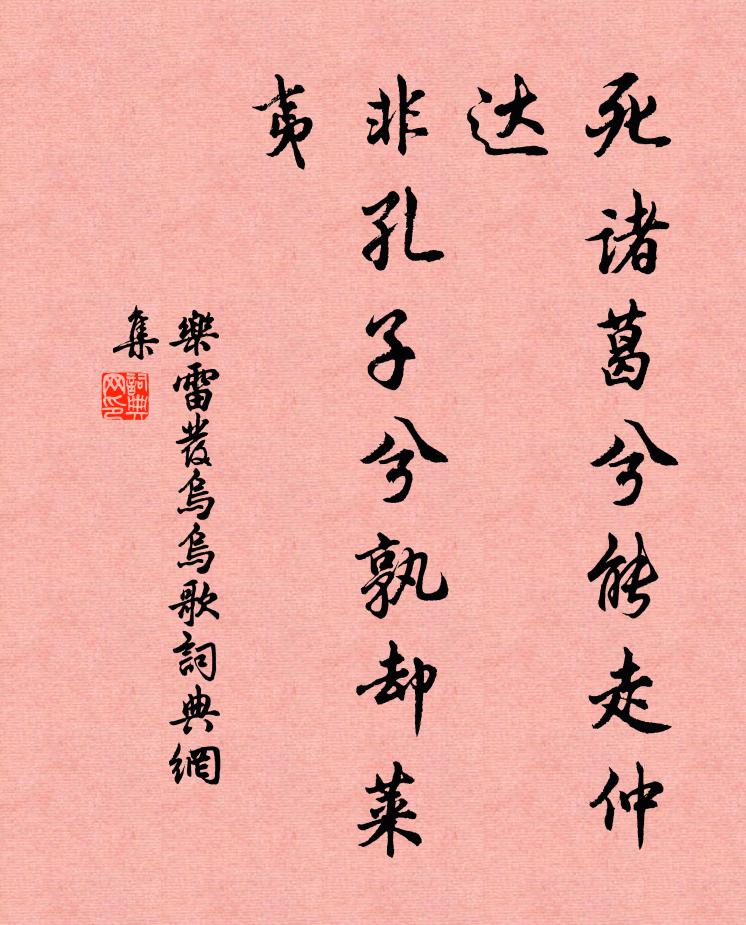 死诸葛兮能走仲
达
非孔子兮孰却莱
夷
樂雷發烏烏歌詞典網
集
詞典
网印